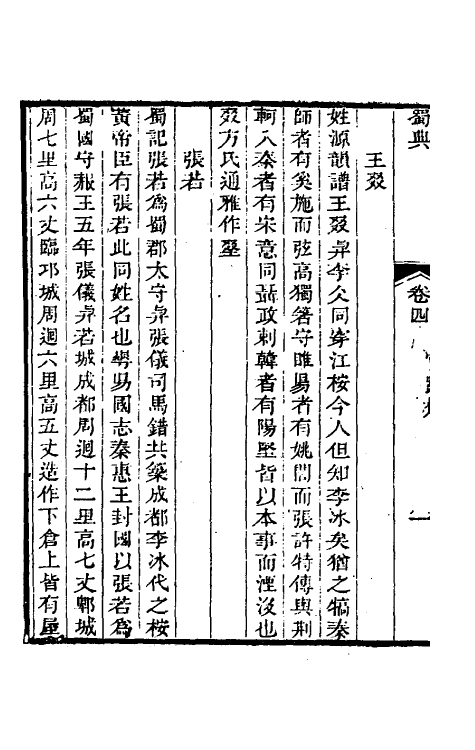 蜀典
卷四
一
王叕
姓源韻譜王叕與李仌同穿江桉今人但知李冰矣猶之犒秦
師者有奚施而弦高獨箸守睢陽者有姚誾而張許特傳與荆
軻入秦者有宋意同聶政刺韓者有陽堅皆以本事而湮沒也
叕方氏通雅作㙍
張若
蜀記張若為蜀郡太守與張儀司馬錯共築成都李冰代之桉
黄帝臣有張若此同姓名也華陽國志秦惠王封國以張若為
蜀國守赧王五年張儀與若城成都周迴十二里高七丈郫城
周七里高六丈臨邛城周迴六里高五丈造作下倉上皆有屋